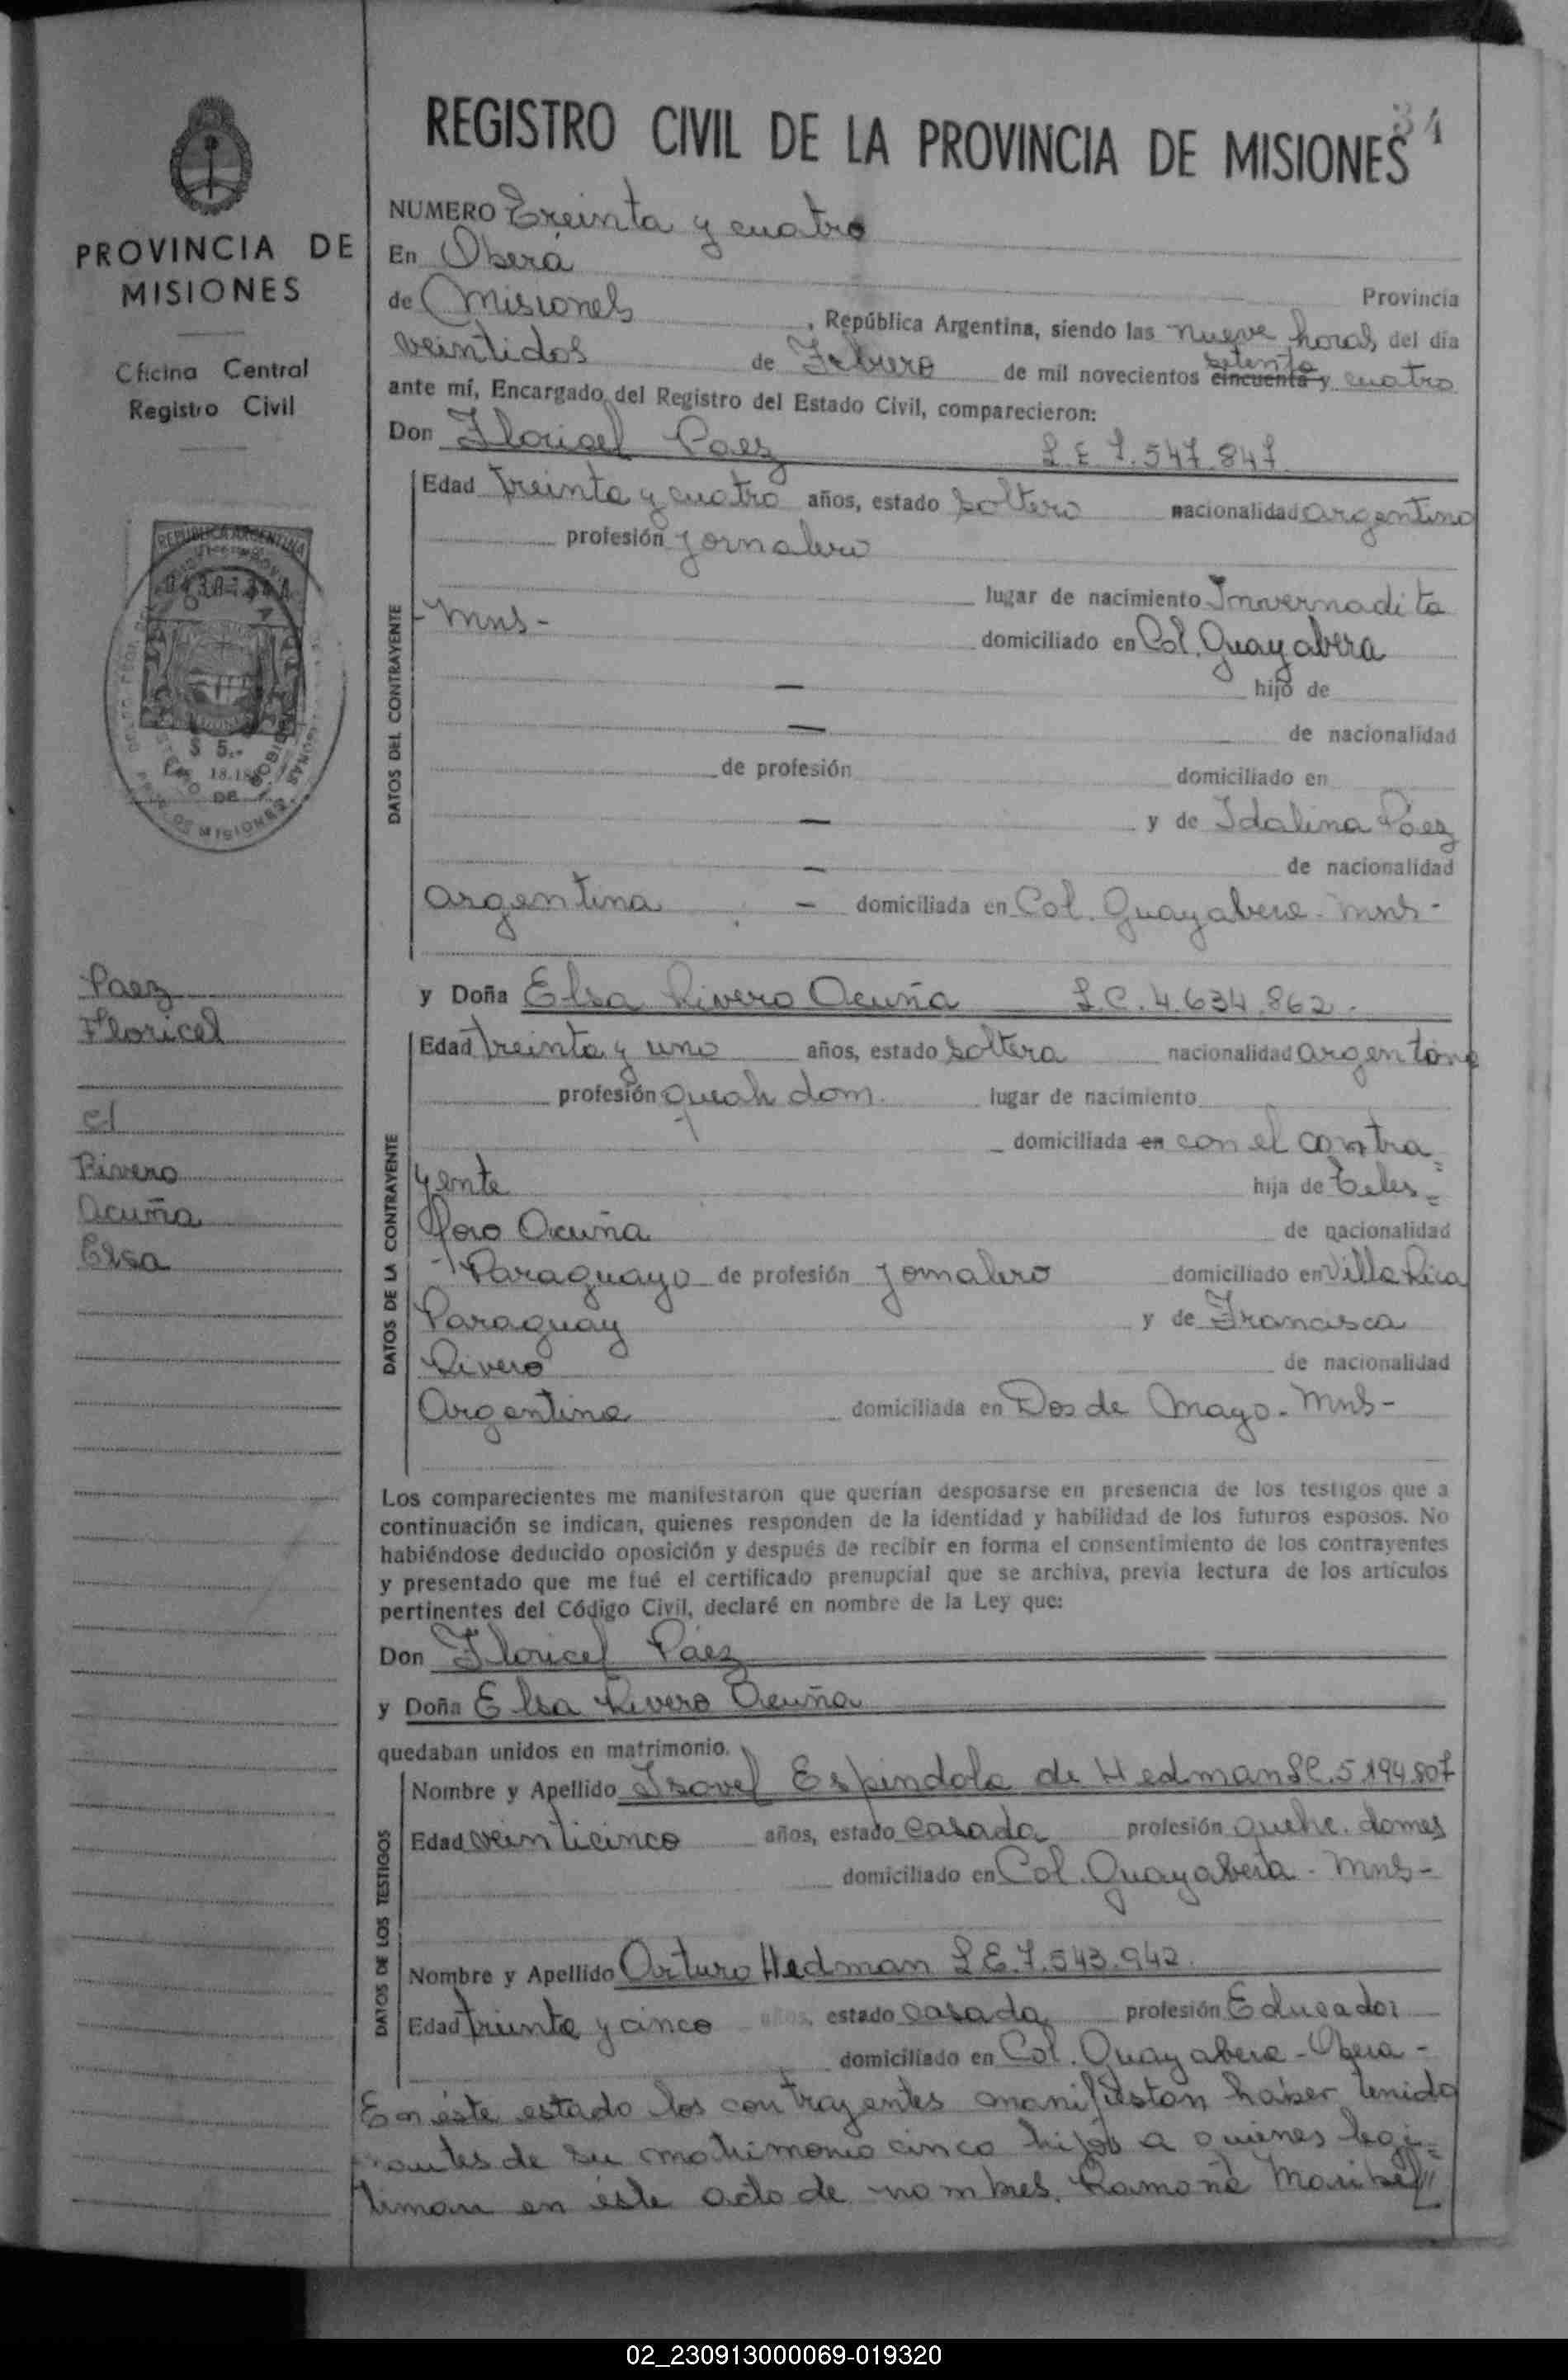 34
REGISTRO CIVIL DE LA PROVINCIA DE MISIONES
PROVINCIA DE
MISIONES
Oficina Central
Registro Civil
REPUBLICA ARGENTINA
$ 5.-
DE
Paez
Floricel
c/
Rivero
Acuña
Elsa
NUMERO Treinta y cuatro
En Oberá
Provincia
de Misiones, República Argentina, siendo las nueve horas del día
veintidos de Febrero de mil novecientos cincuenta setenta y cuatro
ante mí, Encargado del Registro del Estado Civil, comparecieron:
Don Floricel Paez L.E 7.547.847
DATOS DEL CONTRAYENTE
Edad treinta y cuatro años, estado soltero nacionalidad argentino
profesión jornalero
lugar de nacimiento Invernadita
- Mns - domiciliado en Col. Guayabera
— hijo de
— de nacionalidad
de profesión domiciliado en
— y de Idalina Páez
— de nacionalidad
argentina — domiciliada en Col. Guayabera - Mns -
y Doña Elsa Rivero Acuña L.C. 4.634.862.
DATOS DE LA CONTRAYENTE
Edad treinta y uno años, estado soltera nacionalidad argentina
profesión queah dom. lugar de nacimiento
domiciliada en con el contra=
yente hija de Teles=
foro Acuña de nacionalidad
Paraguayo de profesión jornalero domiciliado en Villa Rica
Paraguay y de Francisca
Rivero de nacionalidad
Argentina domiciliada en Dos de Mayo - Mns -
Los comparecientes me manifestaron que querían desposarse en presencia de los testigos que a
continuación se indican, quienes responden de la identidad y habilidad de los futuros esposos. No
habiéndose deducido oposición y después de recibir en forma el consentimiento de los contrayentes
y presentado que me fué el certificado prenupcial que se archiva, previa lectura de los artículos
pertinentes del Código Civil, declaré en nombre de la Ley que:
Don Floricel Páez
y Doña Elsa Rivero Acuña
quedaban unidos en matrimonio.
DATOS DE LOS TESTIGOS
Nombre y Apellido Isovel Espindola de Hedman LC. 5.194.807
Edad veinticinco años, estado casada profesión quehc. domes
domiciliado en Col. Guayabera - Mns -
Nombre y Apellido Arturo Hedman L.E. 7.543.942.
Edad treinta y cinco años, estado casado profesión Educador
domiciliado en Col. Guayabera - Obera -
En éste estado los contrayentes manifiestan haber tenido
antes de su matrimonio cinco hijos a quienes legi=
timan en éste acto de nombres. Ramona Maribel//
02_230913000069-019320